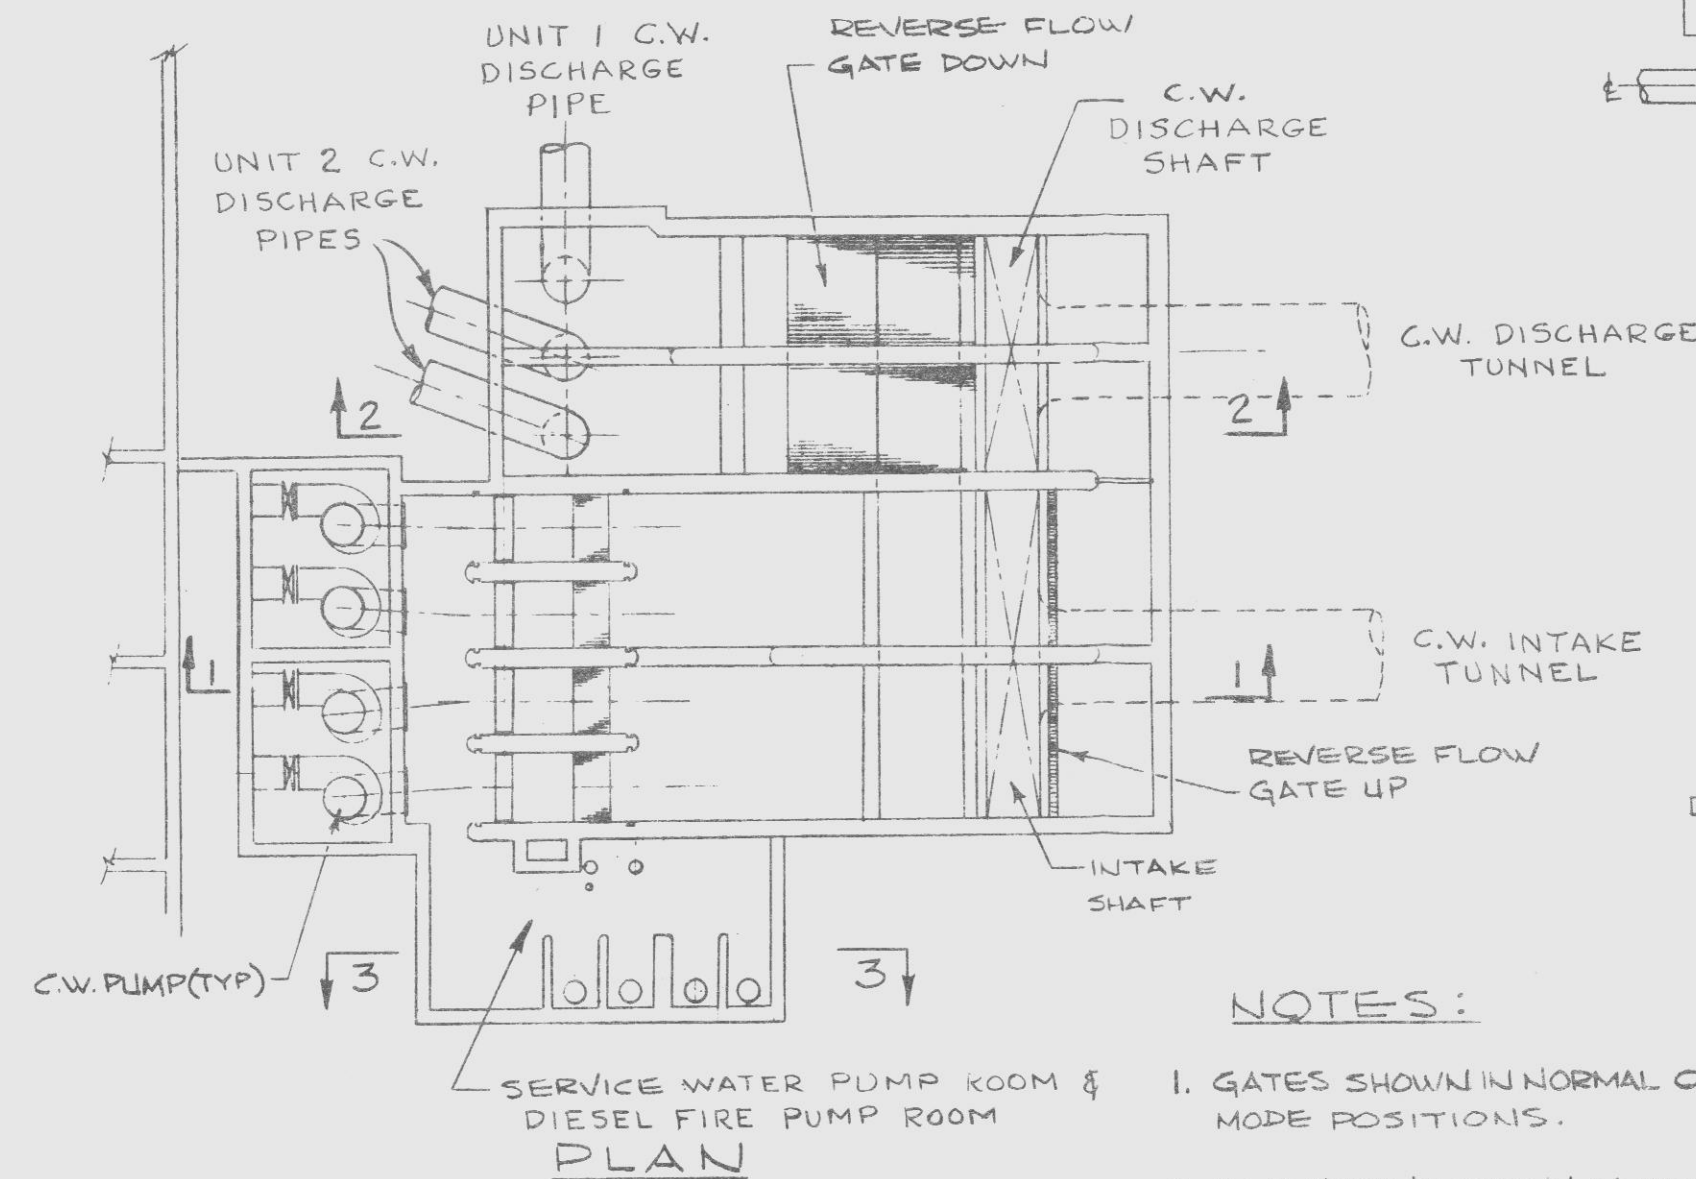 UNIT 1 C.W.
DISCHARGE
PIPE
REVERSE FLOW
GATE DOWN
C.W.
DISCHARGE
SHAFT
UNIT 2 C.W.
DISCHARGE
PIPES
C.W. DISCHARGE
TUNNEL
2
2
C.W. INTAKE
TUNNEL
1
1
REVERSE FLOW
GATE UP
INTAKE
SHAFT
C.W. PUMP (TYP)
3
3
NOTES:
SERVICE WATER PUMP ROOM &
DIESEL FIRE PUMP ROOM
1. GATES SHOWN IN NORMAL
MODE POSITIONS.
PLAN